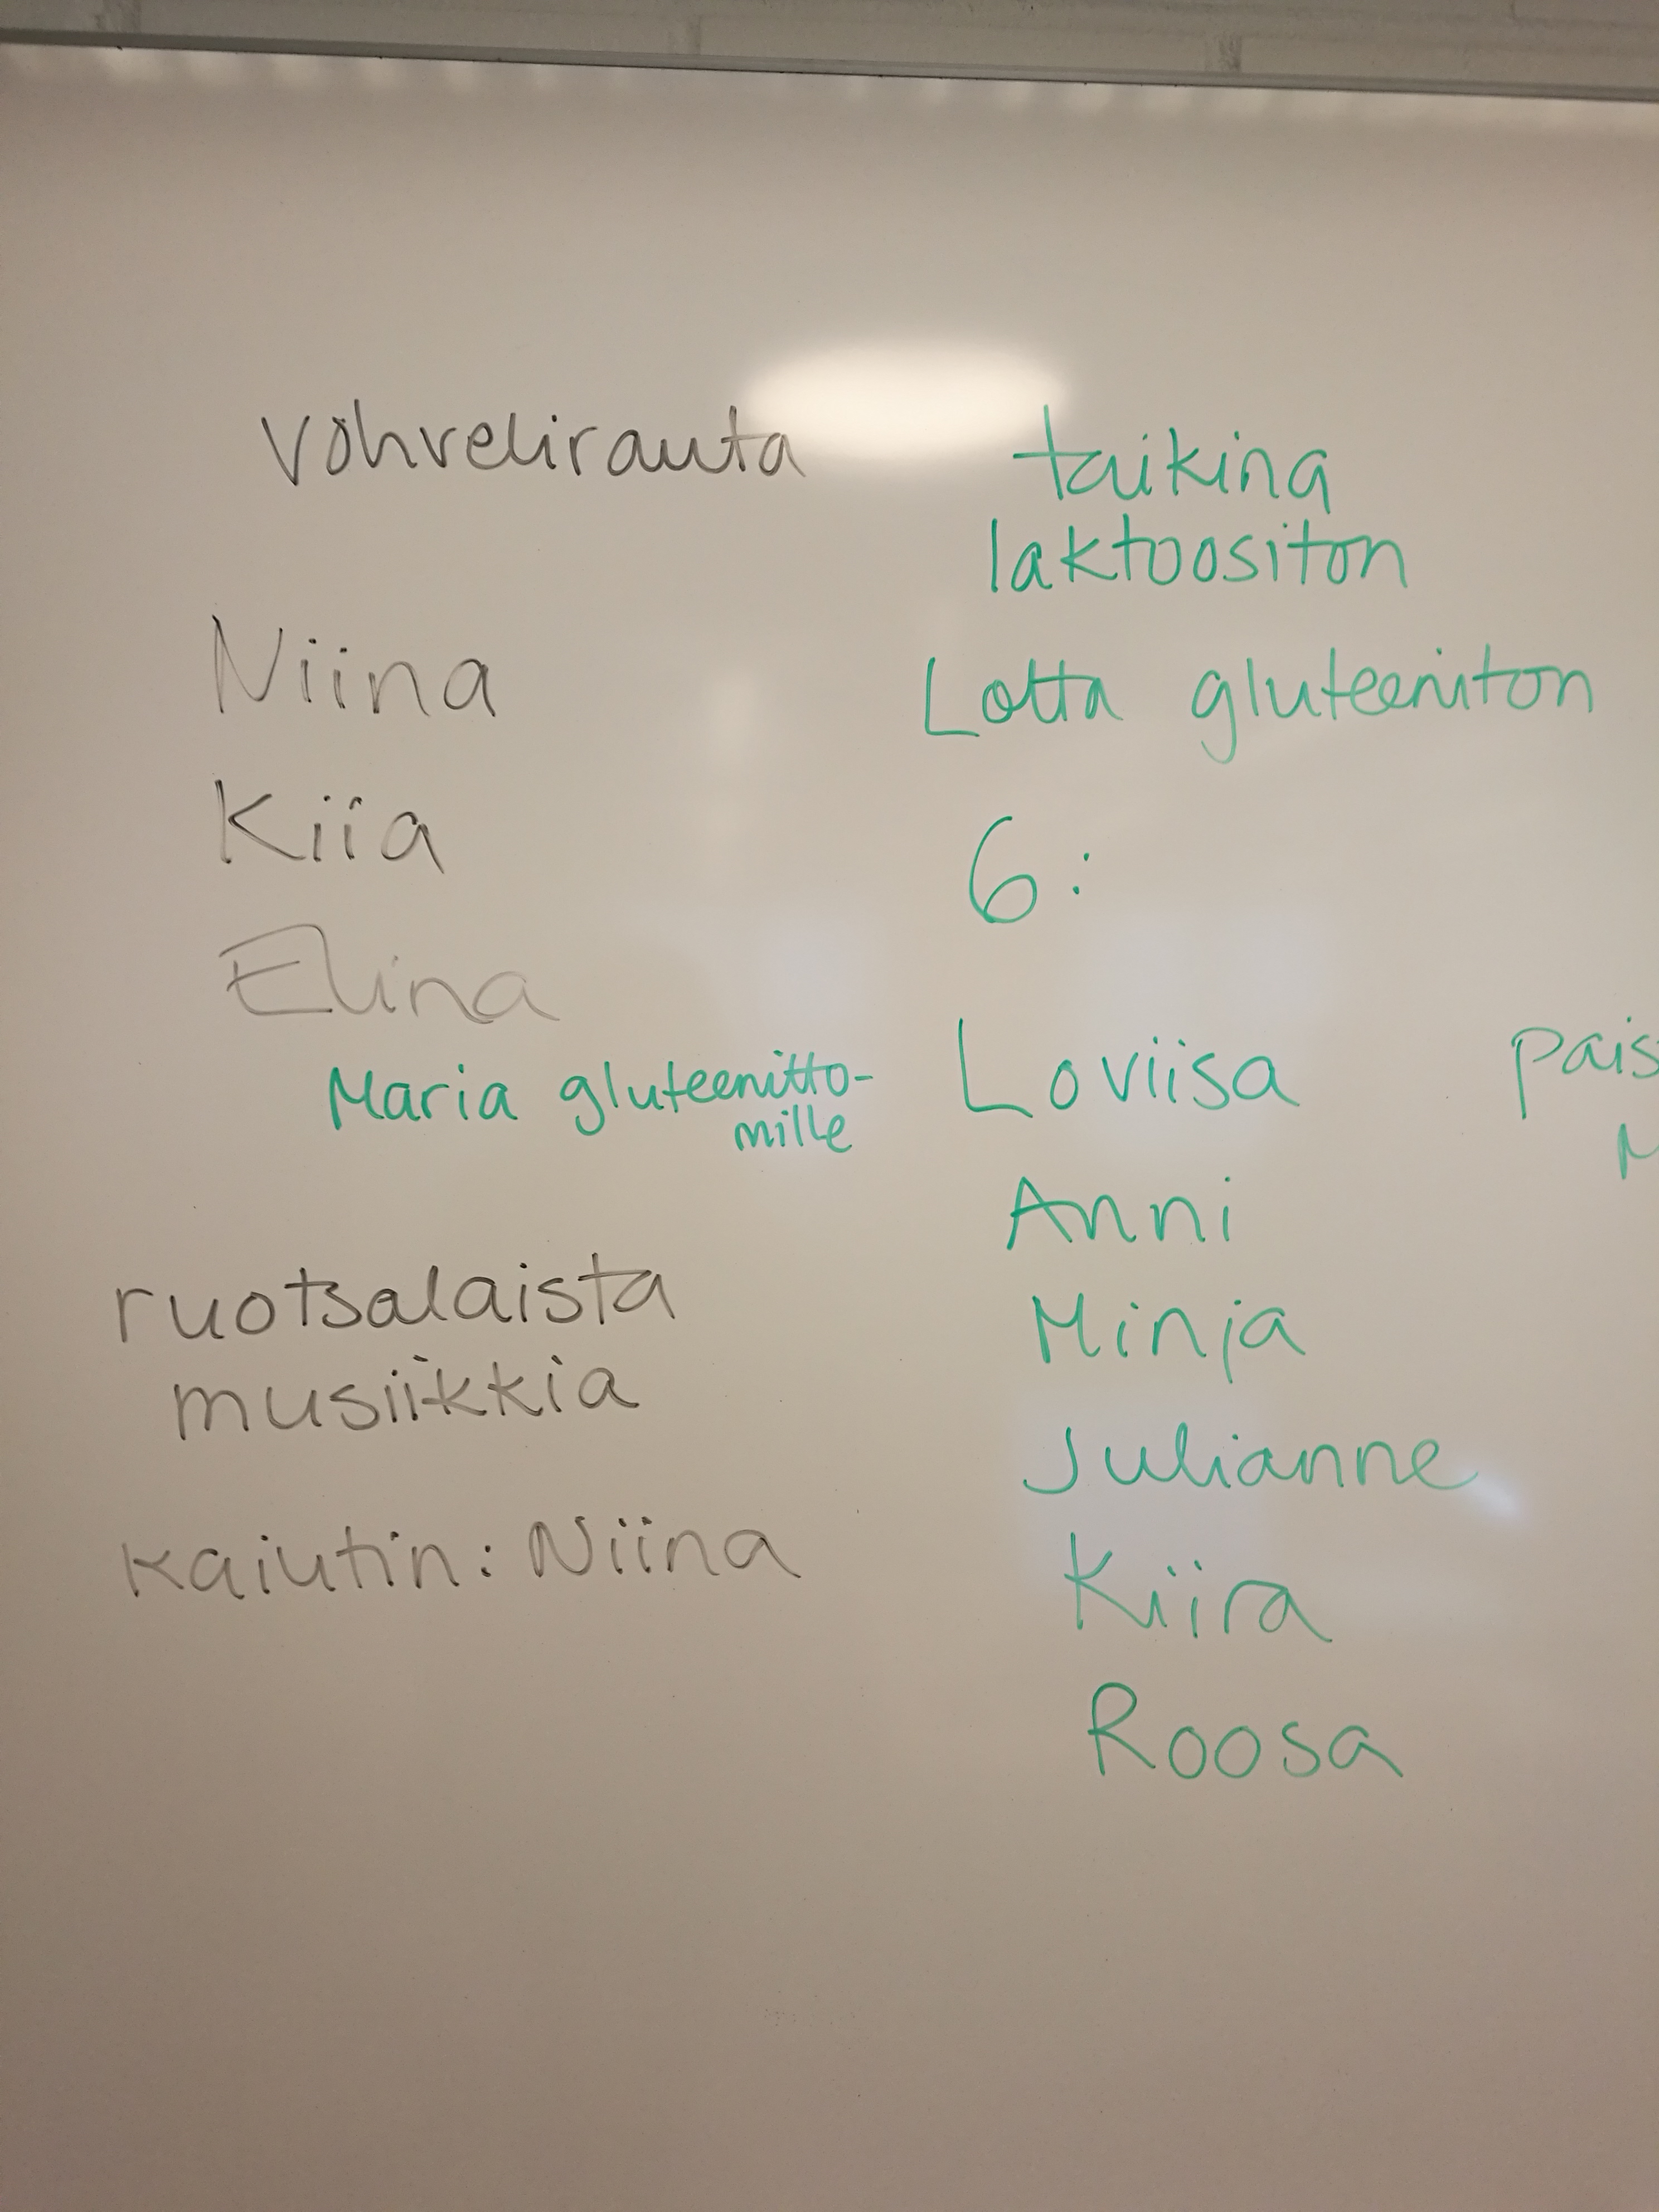 vohvelirauta
Niina
Kiia
Elina
Maria gluteenitto-
mille
ruotsalaista
musiikkia
kaiutin: Niina
taikina
laktoositon
Lotta gluteeniton
6:
Loviisa
Anni
Minja
Julianne
Kiira
Roosa
pais